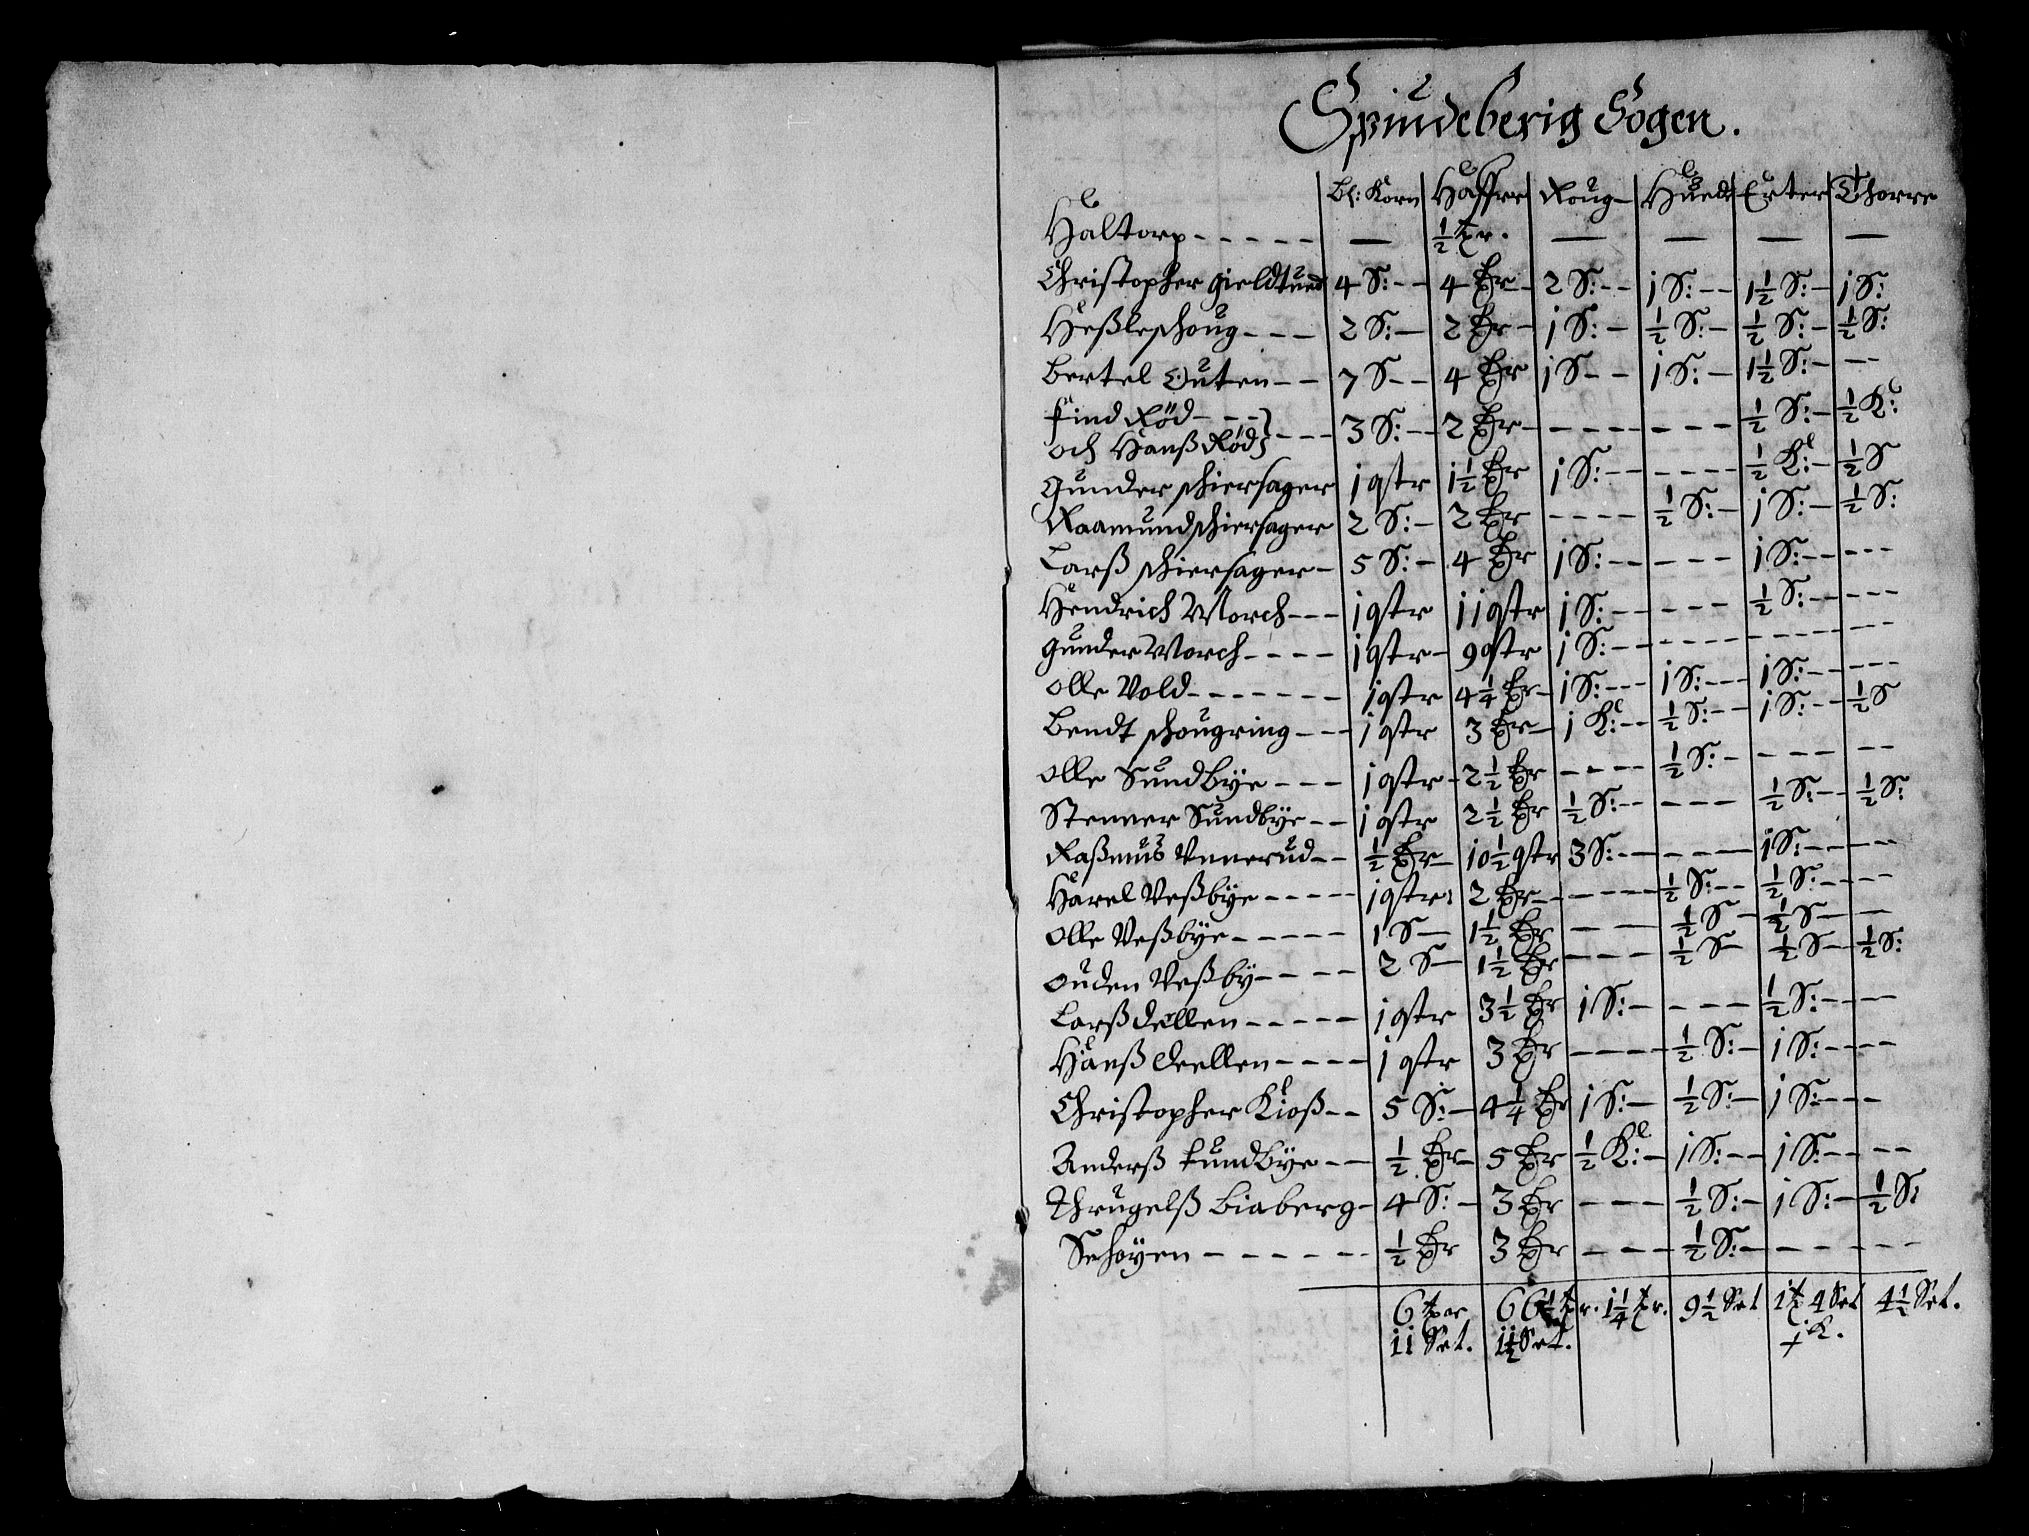 Spindeberig Sogen.
Bl: Korn Haffre Roug Huede Erter Thorre
Haltorp - - - - - — ½ tr. — — — —
Christopher gieldtued 4 S: - - 4 tr - - 2 S: - - 1 S: - - 1½ S: - 1 S:
Heßleschoug - - - 2 S: - 2 tr - 1 S: - ½ S: - ½ S: - ½ S:
Bertel Outen - - 7 S - - 4 tr 1 S - - 1 S: - 1½ S: - - -
Find Rød - - -
och Hanß Rød - - - 3 S: - - 2 tr - - - - - - - - ½ S: - ½ K:
Gunder schiersager 1 qtr 1½ tr 1 S: - - - - - - ½ K: - ½ S
Raamund schiersager 2 S: - 2 tr - - - - ½ S: - 1 S: - ½ S:
Larß schiersager - 5 S: - 4 tr 1 S: - - - - - 1 S: - - - - -
Hendrich Morch - - - 1 qtr 11 qtr 1 S: - - - - - ½ S: - - - - -
Gunder Morch - - - - 1 qtr - 9 qtr 1 S: - - - - - - - - - - - - -
Olle Vold - - - - - - - 1 qtr 4¼ tr - 1 S: - - - 1 S: - - - 1 S: - - - - -
Bendt schougring - - - 1 qtr 3 tr - 1 K: - - ½ S: - - 1 S: - - ½ S
Olle Sundbÿe - - - 1 qtr - 2½ tr - - - - ½ S: - - - - - -
Stenner Sundbÿe - - 1 qtr 2½ tr ½ S: - - - - - ½ S: - - ½ S:
Raßmus Vnnerud - - ½ tr - 10½ qtr 3 S: - - - - - 1 S: - - - -
Harel Veßbÿe - - - - - 1 qtr: 2 tr - - - - - - ½ S: - - ½ S: - - - -
Olle Veßbÿe - - - - - 1 S - 1½ tr - - ½ S - ½ S - -
Ouden Veßby - - - - 2 S - 1½ tr - - - ½ S - ½ S - ½ S:
Larß dellen - - - - - 1 qtr 3½ tr 1 S: - - - - ½ S: - - - -
Hanß deellen - - - - 1 qtr 3 tr - - - - ½ S: - 1 S: - - - -
Christopher Kioß - - 5 S: - 4¼ tr 1 S: - ½ S: - 1 S: - - - -
Anderß fundbÿe - - ½ tr - 5 tr ½ K: - 1 S: - - 1 S: - - - -
Thrugelß Biaberg - 4 S: - 3 tr - - - ½ S: - 1 S: - ½ S:
Schoÿen - - - - - - ½ tr 3 tr - - - ½ S: - - - - - -
6 tr 66½ tr. 1¼ tr. 9½ Set 1 t 4 Set 4½ Set.
11 Set. 1½ Set. 1 K.